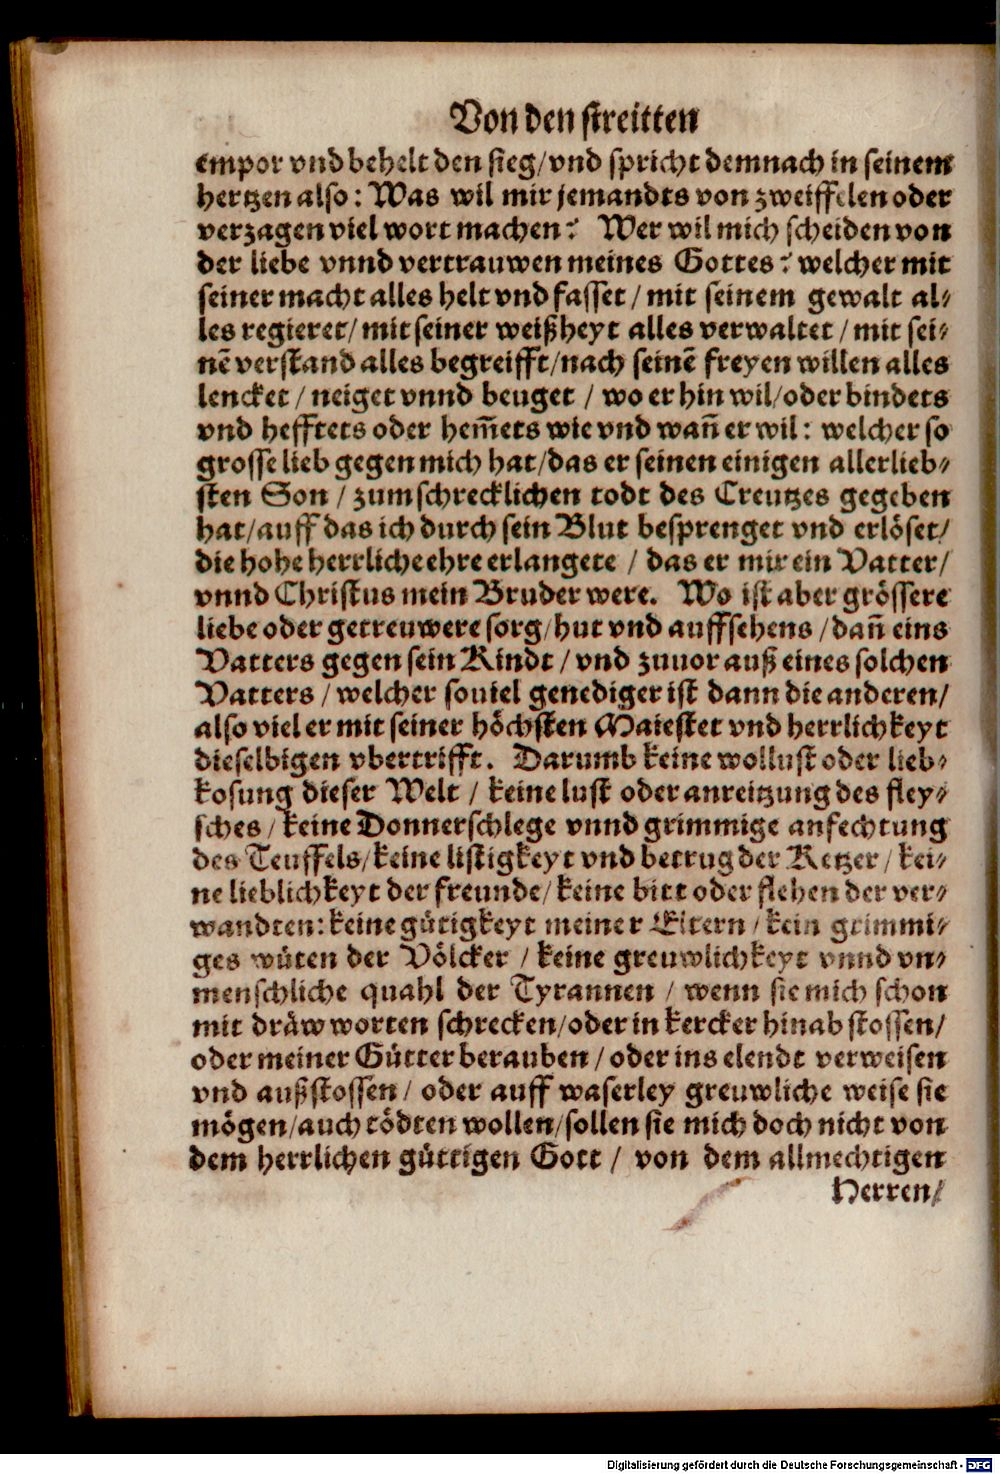 Von den streitten
empor vnd behelt den sieg/vnd spricht demnach in seinem
hertzen also: Was wil mir jemandts von zweiffelen oder
verzagen viel wort machen? Wer wil mich scheiden von
der liebe vnnd vertrauwen meines Gottes? welcher mit
seiner macht alles helt vnd fasset / mit seinem gewalt al-
les regieret/ mit seiner weißheyt alles verwaltet / mit sei-
nẽ verstand alles begreifft/nach seinẽ freyen willen alles
lencket / neiget vnnd beuget / wo er hin wil/oder bindets
vnd hefftets oder hem̃ets wie vnd wañ er wil: welcher so
grosse lieb gegen mich hat/das er seinen einigen allerlieb-
sten Son / zum schrecklichen todt des Creutzes gegeben
hat/auff das ich durch sein Blut besprenget vnd erlöset/
die hohe herrliche ehre erlangete / das er mir ein Vatter/
vnnd Christus mein Bruder were. Wo ist aber grössere
liebe oder getreuwere sorg/hut vnd auffsehens /dañ eins
Vatters gegen sein Kindt / vnd zuuor auß eines solchen
Vatters / welcher souiel genediger ist dann die anderen/
also viel er mit seiner höchsten Maiestet vnd herrlichkeyt
dieselbigen vbertrifft. Darumb keine wollust oder lieb-
kosung dieser Welt / keine lust oder anreitzung des fley-
sches/ keine Donnerschlege vnnd grimmige anfechtung
des Teuffels/keine listigkeyt vnd betrug der Ketzer/ kei-
ne lieblichkeyt der freunde/ keine bitt oder flehen der ver-
wandten: keine gütigkeyt meiner Eltern / kein grimmi-
ges wüten der Völcker / keine greuwlichkeyt vnnd vn-
menschliche quahl der Tyrannen / wenn sie mich schon
mit dräwworten schrecken/oder in kercker hinab stossen/
oder meiner Gütter berauben / oder ins elendt verweisen
vnd außstossen / oder auff waserley greuwliche weise sie
mögen/auch tödten wollen/sollen sie mich doch nicht von
dem herrlichen güttigen Gott / von dem allmechtigen
Herren/
Digitalisierung gefördert durch die Deutsche Forschungsgemeinschaft - DFG